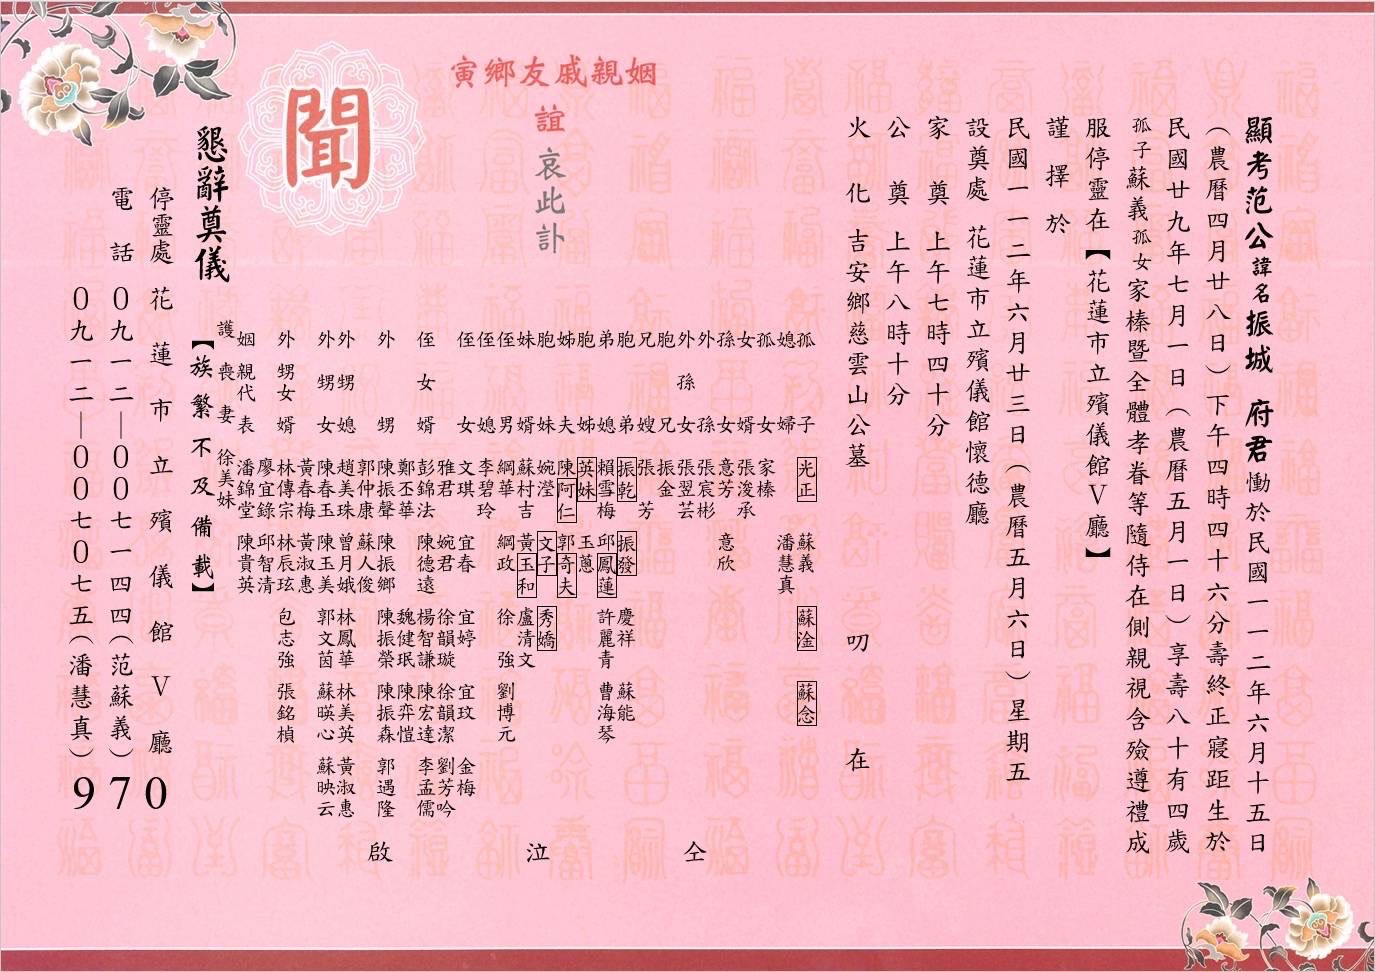 顯考范公諱名振城　府君慟於民國一一二年六月十五日
（農曆四月廿八日）下午四時四十六分壽終正寢距生於
民國廿九年七月一日（農曆五月一日）享壽八十有四歲
孤子蘇義孤女家榛暨全體孝眷等隨侍在側親視含殮遵禮成
服停靈在【花蓮市立殯儀館Ｖ廳】
謹擇於
民國一一二年六月廿三日（農曆五月六日）星期五
設奠處　花蓮市立殯儀館懷德廳
家奠　上午七時四十分
公奠　上午八時十分
火化　吉安鄉慈雲山公墓　叨在
姻親戚友鄉寅
誼
哀此訃
聞
孤子　光正　蘇義　蘇淦　蘇念
媳婦　潘慧真
孤女　家榛
女婿　張浚承
孫女　意芳　意欣
外孫　張宸彬
外孫女　張翌芸
胞兄　振金
兄嫂　張芳
胞弟　振乾　振發　慶祥　蘇能
弟媳　賴雪梅　邱鳳蓮　許麗青　曹海琴
胞姊　英妹　玉蕙
姊夫　陳阿仁　郭奇夫
胞妹　婉瀅　文子　秀嬌
妹婿　蘇村吉　黃玉和　盧清文
侄男　綱華　綱政　徐強　劉博元
侄媳　李碧玲
侄女　文琪　宜春　宜婷　宜玟　金梅
雅君　婉君　徐韻璇　徐韻潔　劉芳吟
侄女婿　彭錦法　陳德遠　楊智謙　陳宏達　李孟儒
鄭丕華　魏健珉　陳弈愷
外甥　陳振聲　陳振鄉　陳振榮　陳振森　郭遇隆
郭仲康　蘇人俊
外甥媳　趙美珠　曾月娥　林鳳華　林美英　黃淑惠
外甥女　陳春玉　陳玉美　郭文茵　蘇暎心　蘇映云
黃春梅　黃淑惠
外甥女婿　林傳宗　林辰玹　包志強　張銘楨
廖宜錄　邱智清
姻親代表　潘錦堂　陳貴英
護喪妻　徐美妹
仝泣啟
【族繁不及備載】
懇辭奠儀
停靈處　花蓮市立殯儀館Ｖ廳
電話　０九一二—００七一四四（范蘇義）
０九一二—００七０七五（潘慧真）
970